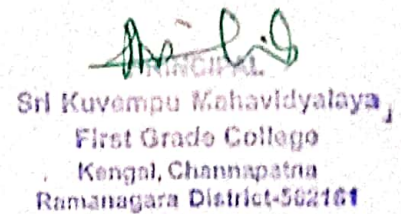 PRINCIPAL
Sri Kuvempu Mahavidyalaya,
First Grade College
Kengal, Channapatna
Ramanagara District-562161